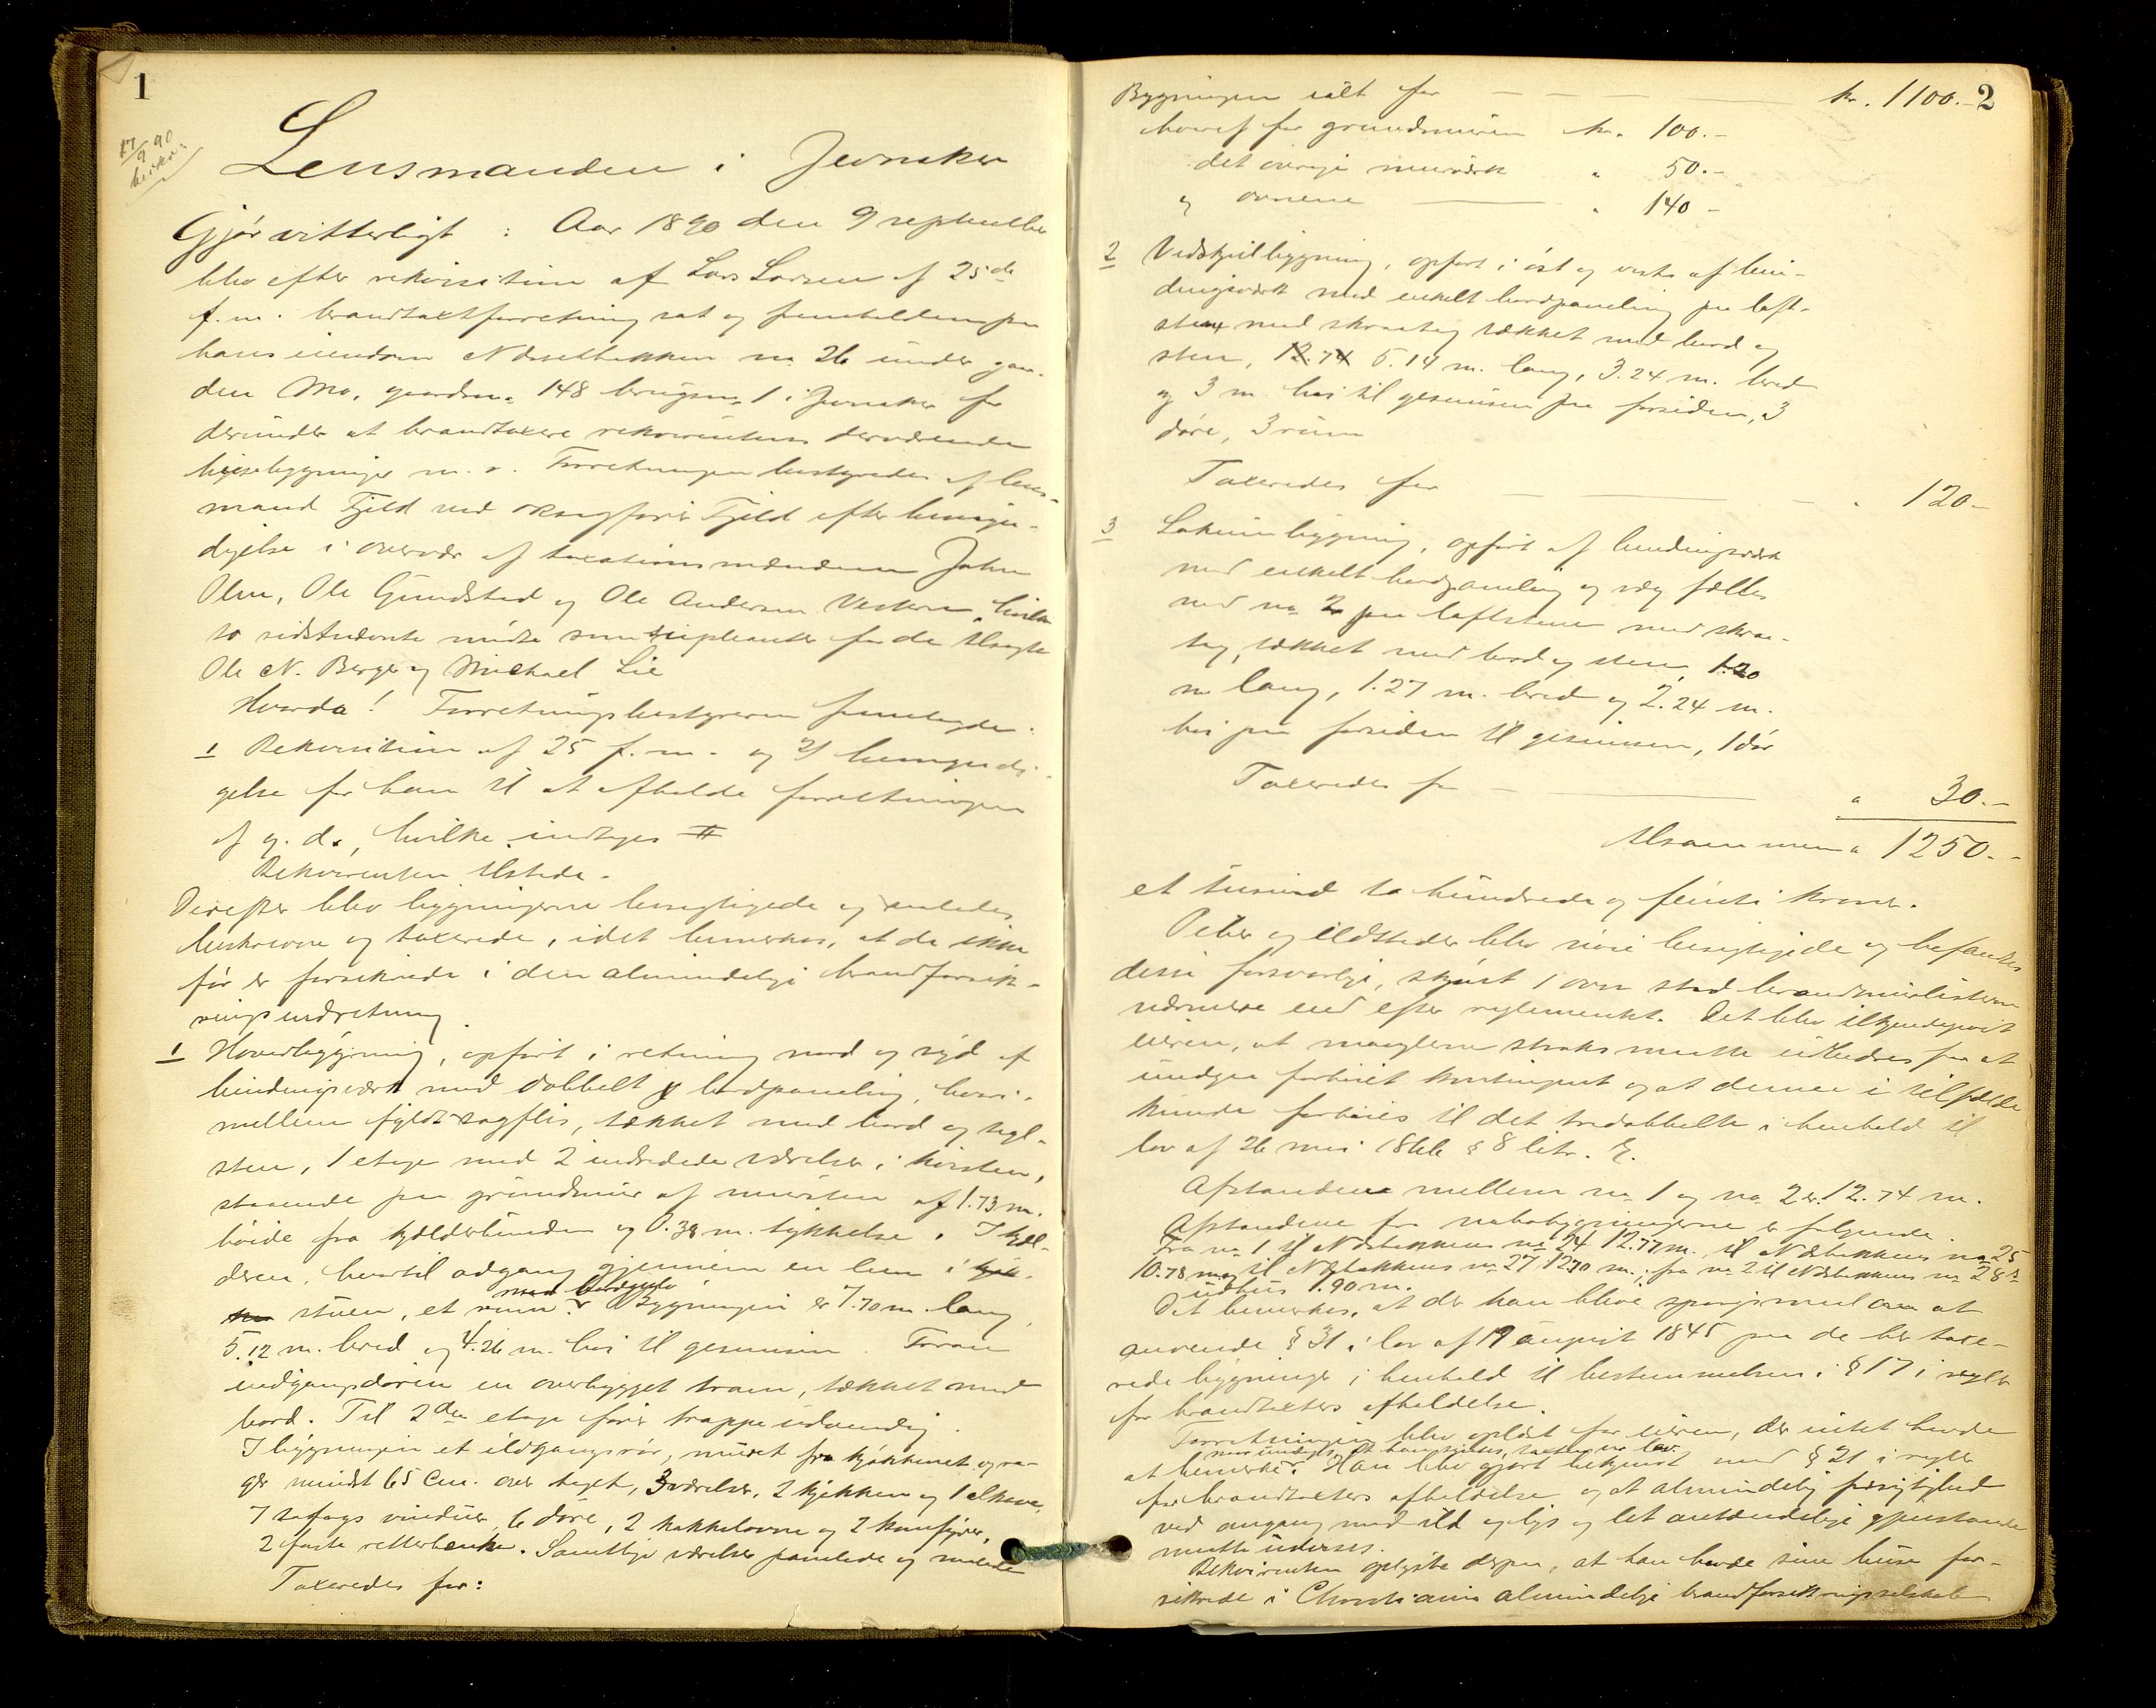 1
17/9 90
Lensmanden i Jevnaker
Gjør vitterligt : Aar 1890 den 9 september
blev efter rekvisition af Lars Larsen af 25de
f. m. brandtaxtforretning sat og fremholden paa
hans eiendom Næsetbakken no 26 under gaar-
den Mo, gaardsno 148 brugsno 1 i Jevnaker for
derunder at brandtaxere rekvirentens derværende
huse bygninger m. v. Forretningen bestyredes af lens-
mand Fjeld ved sagfører Fjeld efter bemyn-
digelse i overvær af taxationsmændene John
Olsen, Ole Gundstad og Ole Andersen Vestern, hvilke
to sidstnævnte mødte som supleanter for de tilsagte
Ole N. Berger og Michael Lie
Hvorda! Forretningsbestyreren fremlagde.
1 Rekvisition af 25 f. m. og 2) bemyndi-
gelse for ham til at afholde forretningen
af g. d., hvilke indtages #
Rekvirenten tilstede.
Derefter blev bygningerne besigtigede og saaledes
beskrevne og taxerede, idet bemerkes, at de ikke
før er forsikrede i den almindelige brandforsik-
ringsindretning.
1 Hovedbygning, opført i retning nord og syd af
bindingsverk med dobbelt bordpaneling, hvori-
mellem fyldt sagflis, tækket med bord og tagl-
sten, 1 etage med 2 indredede værelser i kvisten,
staaende paa grundmur af mursten af 1.73 m.
høide fra kjelderbunden og 0.38 m. tykkelse. I kjel-
deren, hvortil adgang gjennem en lem i
med bordgulv
stuen, et rum. Bygningen er 7.70 m lang,
5.12 m. bred og 4.26 m. høi til gesimsen. Foran
indgangsdøren en overbygget tram, tækket med
bord. Til 2den etage fører trappe udvendig.
I bygningen et ildgangsrør, muret fra kjøkkenet og ra-
ger mindst 65 Cm. over taget, 3 værelser, 2 kjøkken og 1 alkove,
7 tofags vinduer, 6 døre, 2 kakkelovne og 2 komfyrer,
2 faste retterbænke. Samtlige værelser panelede og malede
Taxeredes for:
2
Bygningen ialt for — — — kr. 1100.-
hvoraf for grundmuren kr. 100.-
det øvrige murværk " 50.-
og ovnene — " 140 -
2 Vedskjulbygning, opført i øst og vest af bin-
dingsverk med enkelt bordpaneling paa løft-
sten med skraatag tækket med bord og
sten, 12.74 5.14 m. lang, 3.24 m. bred
og 3 m. høi til gesimsen paa forsiden, 3
døre, 3 rum
Taxeredes for — — — " 120 -
3 Lokumbygning, opført af bindingsverk
med enkelt bordpaneling og væg fælles
med no 2 paa løftstene med skraa-
tag, tækket med bord og sten, 1.20
m lang, 1.27 m. bred og 2.24 m.
høi paa forsiden til gesimsen, 1 dør
Taxeredes for — — " 30.-
Tilsammen " 1250.-
et tusind to hundrede og femti kroner.
Piber og ildsteder blev nøie besigtigede og befandtes
disse forsvarlige, skjønt 1 ovn stod brandmuslisterne
nærmere end efter reglementet. Det blev tilkjendegivet
eieren, at manglerne straks maatte udbedres for at
undgaa forhøiet kontingent og at denne i tilfælde
kunde forhøies til det tredobbelte i henhold til
lov af 26 mai 1866 § 8 litr. E.
Afstanden mellem no 1 og no 2 er 12.74 m.
Afstandene fra nabobygningerne er følgende
Fra no 1 til Næsbakkens no 24 12.77 m. til Næsbakkens no 25
10.78 m og til Næsbakkens no 27 12.70 m.; fra no 2 til Næsbakkens no 28s
udhus 1.90 m.
Det bemerkes, at der kan blive spørgsmaal om at
anvende § 31 i lov af 19 august 1845 paa de her taxe-
rede bygninger i henhold til bestemmelsen i § 17 i regler
for brandtaxters afholdelse.
Forretningen blev oplæst for eieren, der intet havde
at bemerke. Han blev gjort bekjendt med § 21 i regler
for brandtaxters afholdelse og at almindelig forsigtighed
ved omgang med ild og lys og let antændelige gjenstande
maatte udvises.
Rekvirenten oplyste derpaa, at han havde sine huse for-
sikrede i Christiania almindelige brandforsikringsselskab